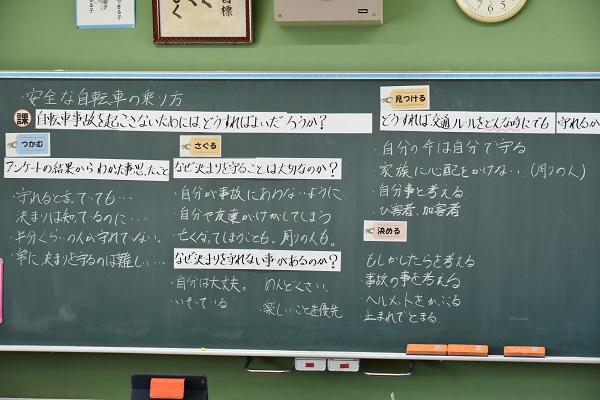 目標
安全な自転車の乗り方
課 自転車事故を起こさないためにはどうすればよいだろうか？
つかむ
アンケートの結果からわかった事、思ったこと
・守れると言っていても…
・決まりは知っているのに…
・半分くらいの人が守れていない。
・常に決まりを守るのは難しい…
さぐる
なぜ決まりを守ることは大切なのか？
・自分が事故にあわないように
・自分や友達がけがしてしまう
・亡くなってしまうことも。周りの人も。
なぜ決まりを守れない事があるのか？
・自分は大丈夫。
・めんどくさい。
・いそっている
・楽しいことを優先
見つける
どうすれば交通ルールをどんな時にでも守れるか
・自分の命は自分で守る
家族に心配をかけない（周りの人）
・自分事と考える
・ひ害者、加害者
決める
もしかしたらを考える
事故の事を考える
・ヘルメットをかぶる
止まれでとまる